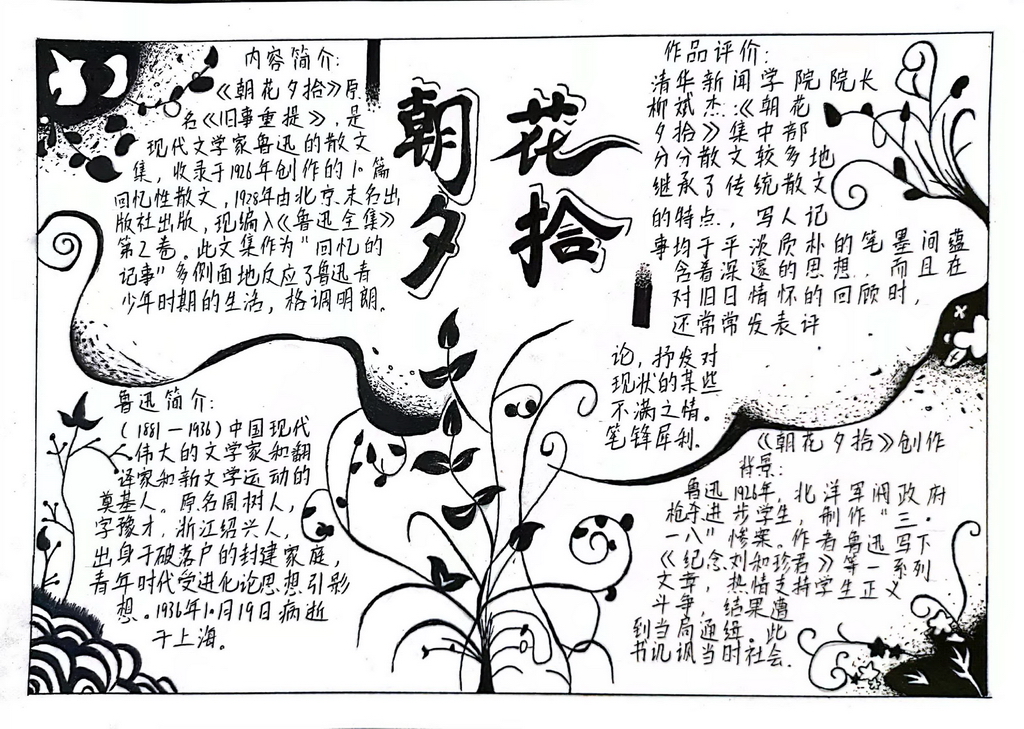 朝花
夕拾
内容简介:
《朝花夕拾》原
名《旧事重提》,是
现代文学家鲁迅的散文
集,收录于1926年创作的10篇
回忆性散文,1928年由北京未名出
版社出版,现编入《鲁迅全集》
第2卷。此文集作为“回忆的
记事”多侧面地反应了鲁迅青
少年时期的生活,格调明朗。
鲁迅简介:
(1881—1936)中国现代
伟大的文学家和翻
译家和新文学运动的
奠基人。原名周树人,
字豫才,浙江绍兴人,
出身于破落户的封建家庭,
青年时代受进化论思想引影
想。1936年10月19日病逝
于上海。
作品评价:
清华新闻学院院长
柳斌杰:《朝花
夕拾》集中部
分分散文较多地
继承了传统散文
的特点,写人记
事均于平淡质朴的笔墨间蕴
含着深邃的思想,而且在
对旧日情怀的回顾时,
还常常发表评
论,抒发对
现状的某些
不满之情。
笔锋犀利.
《朝花夕拾》创作
背景:
鲁迅1926年,北洋军阀政府
枪杀进步学生,制作“三·
一八”惨案。作者鲁迅写下
《纪念刘和珍君》等一系列
文章,热情支持学生正义
斗争,结果遭
到当局通缉。此
书讥讽当时社会.